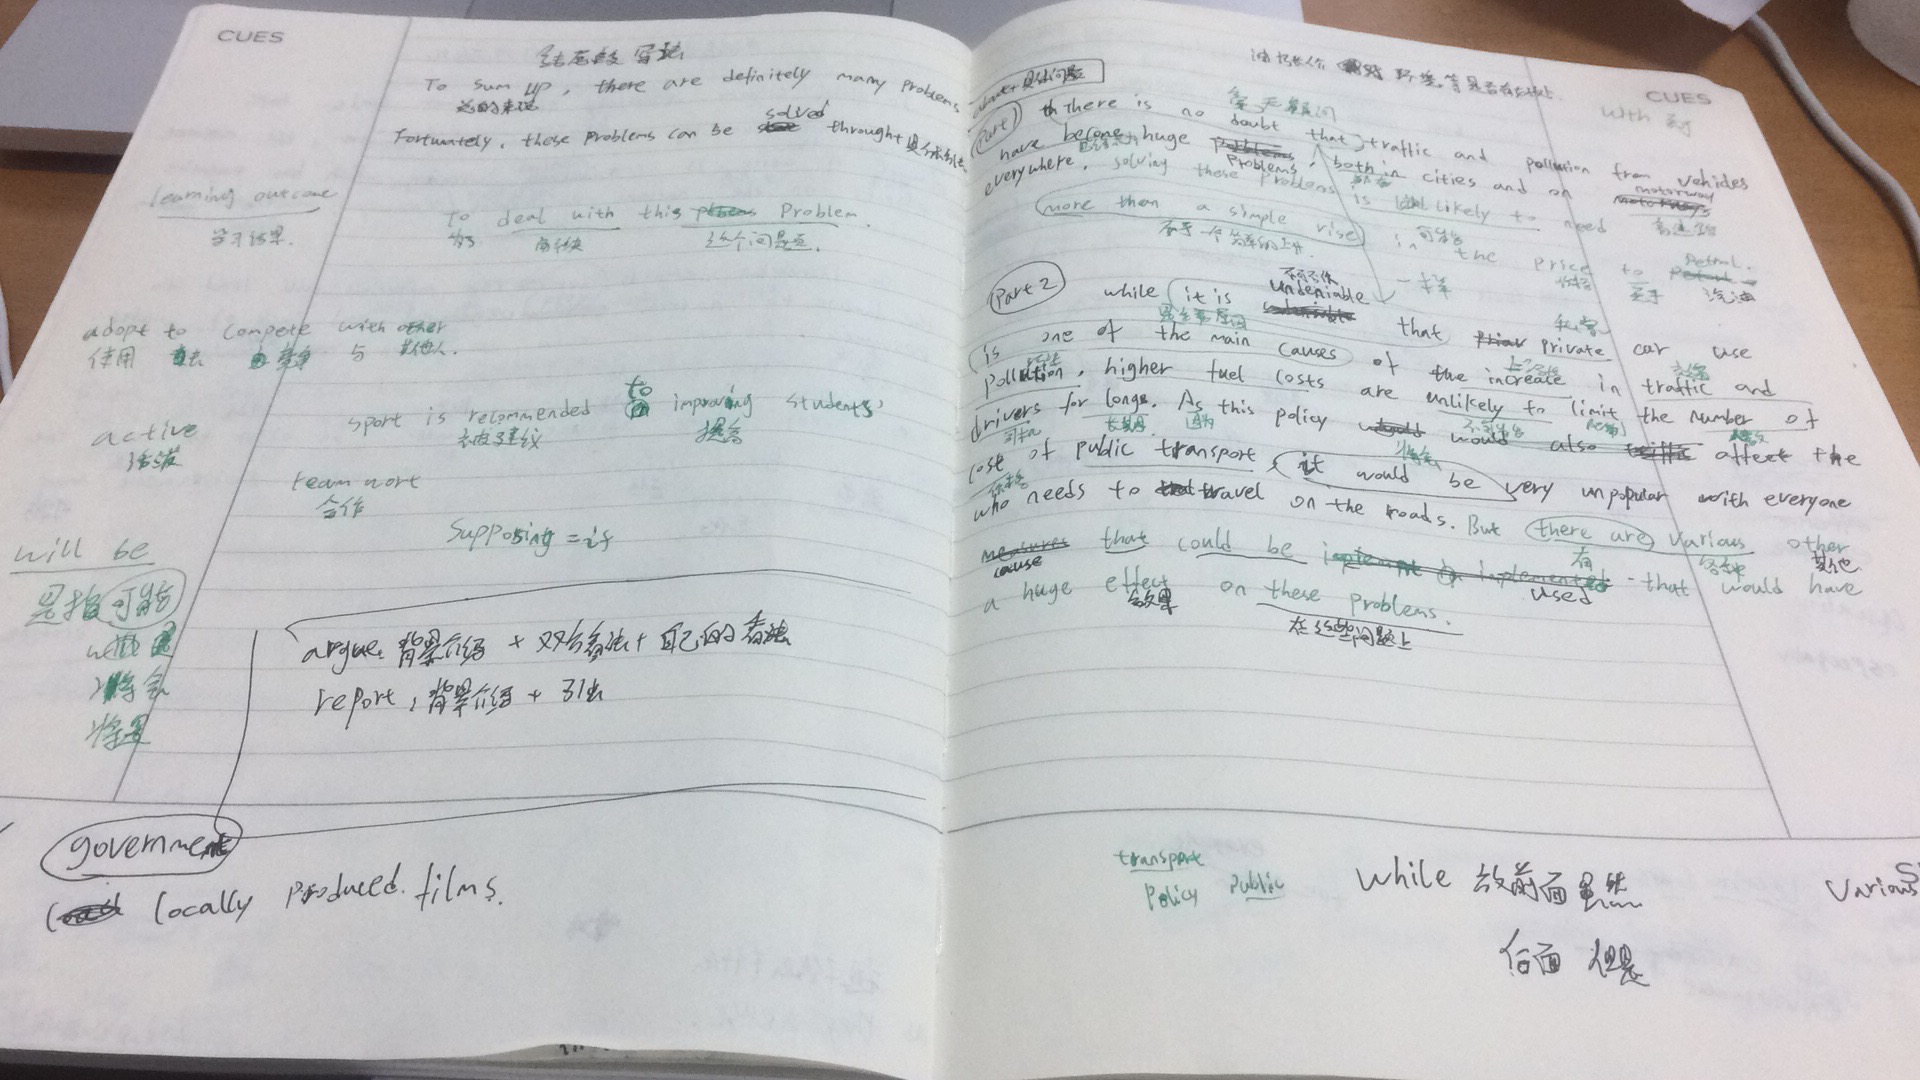 CUES
结尾段 写法
To sum up, there are definitely many problems
总的来说
Fortunately, these problems can be solved throught +
learning outcome
学习结果.
To deal with this Problem.
为了 解决 这个问题.
adopt to compete with other
使用 去 竞争 与 其他人.
active
活泼
sport is recommended to improving students'
被建议 提高
team wort
合作
Supposing = if
will be
是指 可能
将会
将要
argue: 背景介绍 + 双方看法 + 自己的看法
report: 背景介绍 + 引出
government
locally produced. films.
CUES
with 对
+ 具体问题
毫无疑问
Part 1 There is no doubt that traffic and pollution from vehicles
have become huge problems, both in cities and on motorways
everywhere. solving these problems is likely to need
高速路
more than a simple rise in the price to petrol.
不于一个简单的上升 可能 价格 至于 汽油
一样
不可否认
Part 2 while it is undeniable that private car use
是主要原因 私家
is one of the main causes of the increase in traffic and
pollution, higher fuel costs are unlikely to limit the number of
drivers for longe. As this policy would also affect the
司机 长期 因为
cost of public transport, it would be very unpopular with everyone
价格
who needs to travel on the roads. But there are various other
有 各种 其他.
cause that could be used that would have
a huge effect on these problems.
效果 在这些问题上
transport
Policy Public
While 放前面 虽然
后面 但是
various